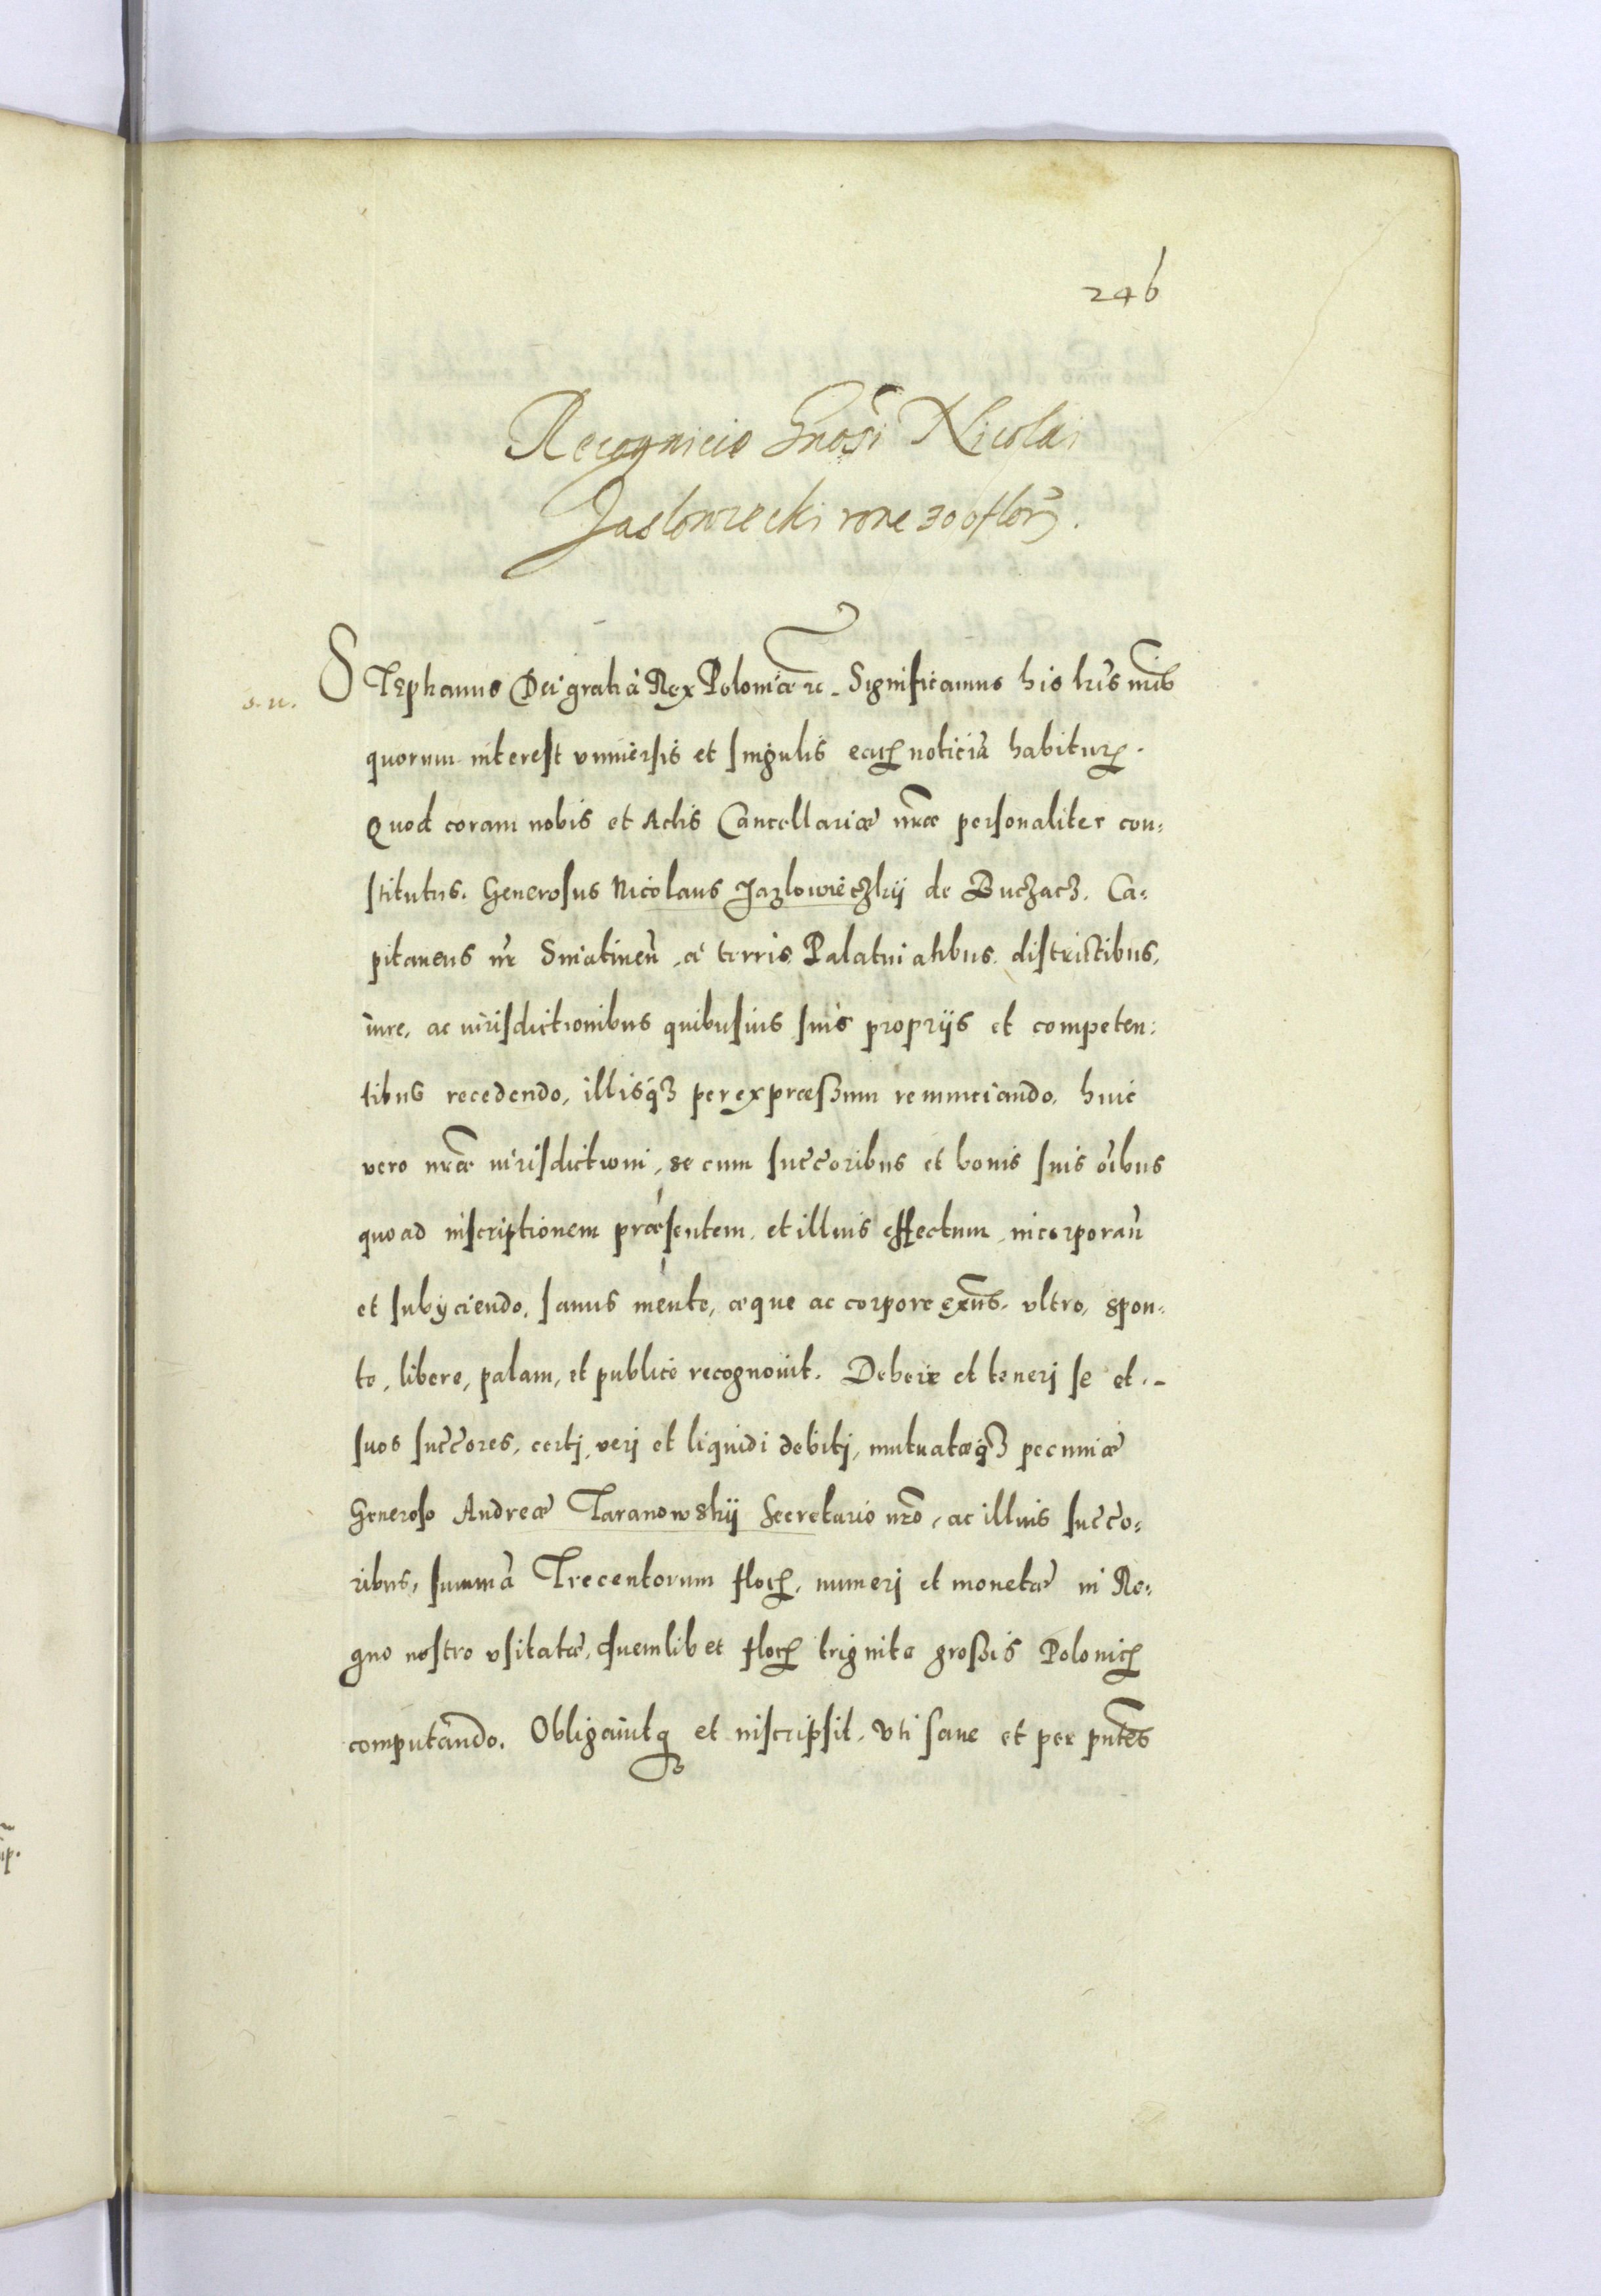 246
Recognicio Gnosi Nicolai
Jaslowiecki rone 300 flor.
s. n.
STEphanus Dei gratia Rex Poloniæ etc. Significamus his lris nris
quorum interest vniuersis et singulis earum noticia habiturum.
Quod coram nobis et Actis Cancellariæ nræ personaliter con:
stitutus. Generosus Nicolaus Jazlowieczkij de Buczacz. Ca:
pitaneus nr Sniatinen, a terris Palatinatibus districtibus,
iure, ac iurisdictionibus quibusuis suis proprijs et competen:
tibus recedendo, illisq3 per expræssum renunciando, huic
vero nræ iurisdictioni, se cum succoribus et bonis suis oibus
quoad inscriptionem præsentem, et illius effectum, incorporan
et subyciendo, sanus mente, æque ac corpore exns. vltro, spon:
te, libere, palam, et publice recognouit. Debere et tenerj se et
suos succores, certj, verj et liquidi debitj, mutuatæq3 pecuniæ
Generoso Andreæ Taranowskij Secretario nro, ac illius succo:
ribus, summa Trecentorum florum, numerj et monetæ in Re:
gno nostro vsitatæ, quemlibet florum triginta grossis Polonicum
computando. Obligauitq et inscripsit, vti sane et per pntes